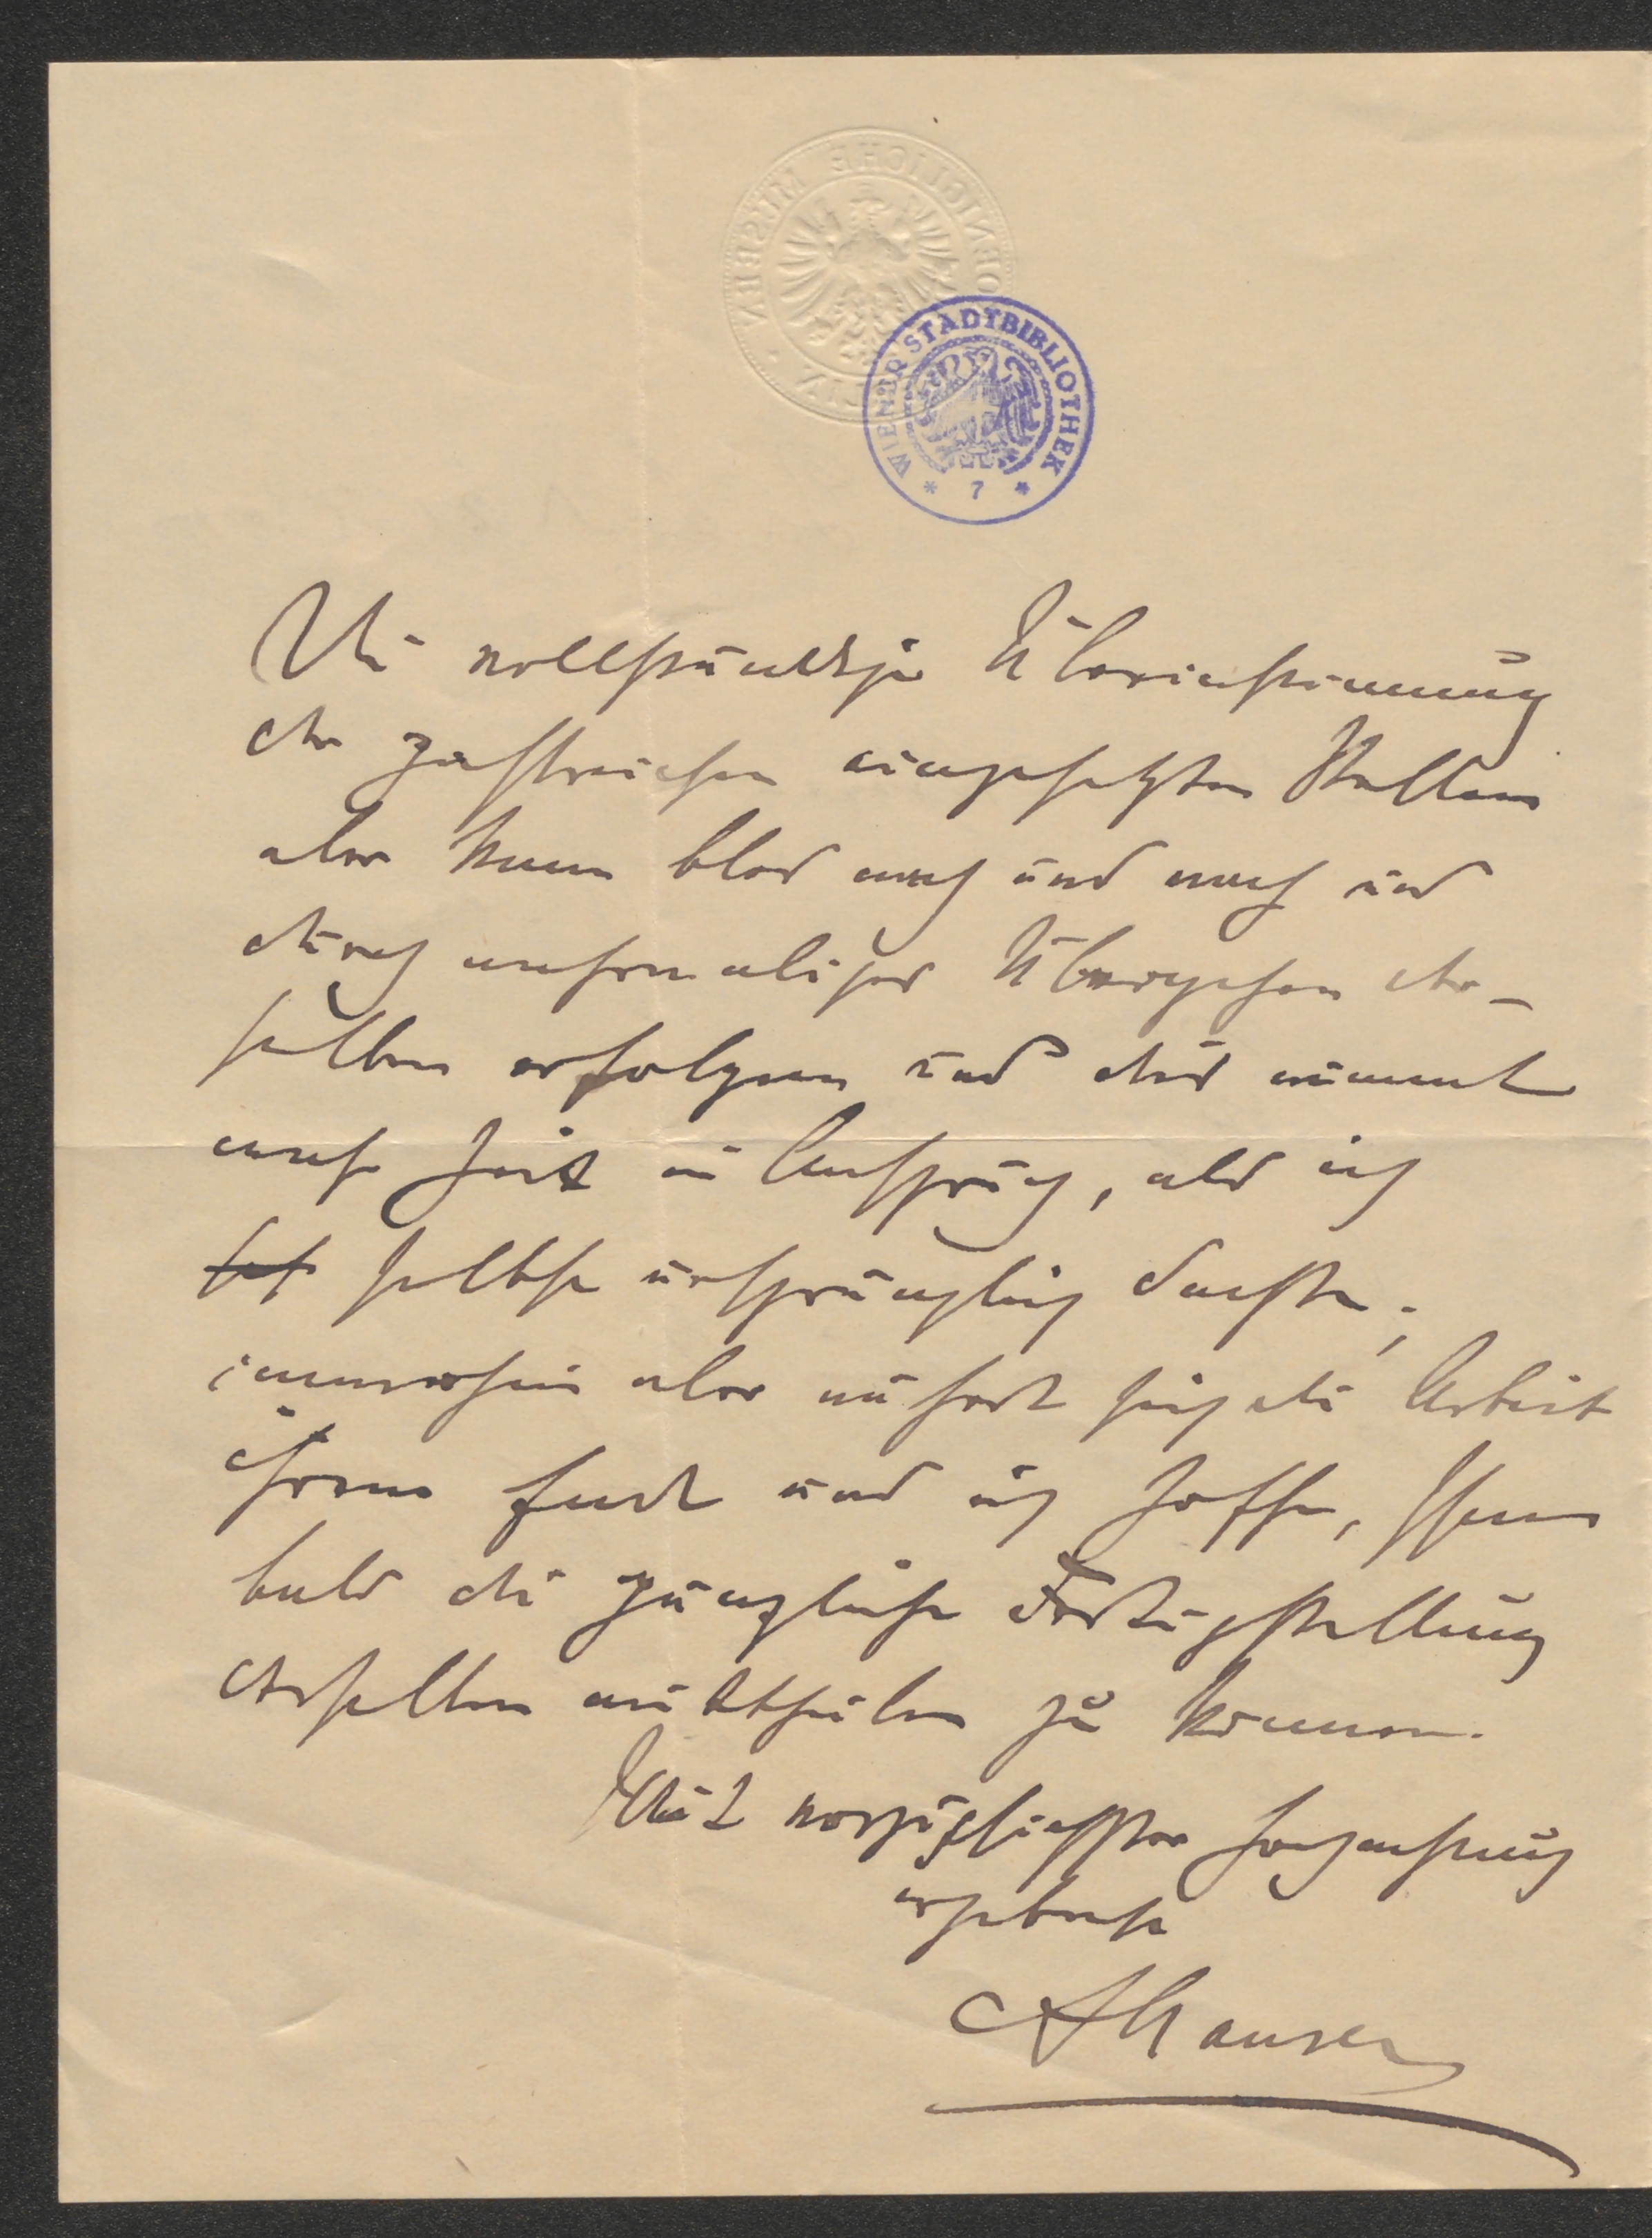 KOENIGLICHE MUSEEN
BERLIN
WIENER STADTBIBLIOTHEK
* 7 *
Die vollständige Übereinstimmung
der zahlreichen eingesetzten Stellen
aber kann blos nach und nach und
durch mehrmaliges Übergehen der-
selben erfolgen und das nimmt
mehr Zeit in Anspruch, als ich
selbst ursprünglich dachte;
immerhin aber nähert sich die Arbeit
ihrem Ende und ich hoffe, Ihnen
bald die gänzliche Fertigstellung
derselben mittheilen zu können.
Mit vorzüglichster Hochachtung
ergebenst
A Hauser